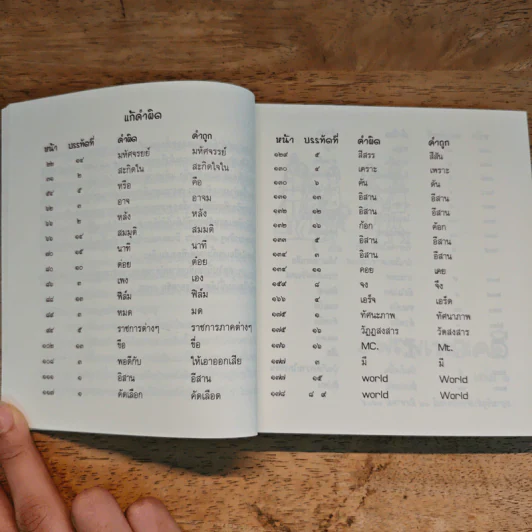 แก้คำผิด
หน้า บรรทัดที่ คำผิด คำถูก
๒๒ ๑๔ มหัศจรรย์ มหัศจรรย์
๓๑ ๒ สะกิดใน สะกิดใจใน
๕๔ ๕ หรือ คือ
๖๒ ๓ อาจ อาจม
๖๒ หลัง หลัง
๑๔ สมมุติ สมมติ
๑๕ นาที นาที
๑๐ ต่อย ต๋อย
๓ เพง เอง
๑๑ ฟิล์ม ฟิล์ม
๓ หมด มด
๕ ราชการต่างๆ ราชการภาคต่างๆ
๑๑ ชือ ชื่อ
๓ พอดีกับ ให้เอาออกเสีย
๑๑๑ ๑ อิสาน อีสาน
๑ คัดเลือก คัดเลือด
หน้า บรรทัดที่ คำผิด คำถูก
๑๒๔ ๕ สีสรร สีสัน
๑๓๐ ๔ เคราะ เพราะ
๑๓๐ ๖ คัน ดัน
๑๓๑ ๑๓ อิสาน อีสาน
๑๓๒ ๑๒ อิสาน อีสาน
๑๓๒ ๑๖ ก้อก ค้อก
๑๓๓ ๕ อิสาน อีสาน
๑๓๔ ๓ อิสาน อีสาน
๑๓๕ ๑๑ คอย เคย
๑๕๔ ๘ จง จึง
๑๖๖ ๔ เอร็จ เอร็ด
๑๗๕ ๑ ทัศนะภาพ ทัศนาภาพ
๑๗๕ ๑๖ วัฏฏสงสาร วัดสงสาร
๑๗๖ ๑๖ MC. Mt.
๑๗๗ ๓ มี มี
๑๗๗ ๑๕ world World
๑๗๘ ๘ ๔ world World